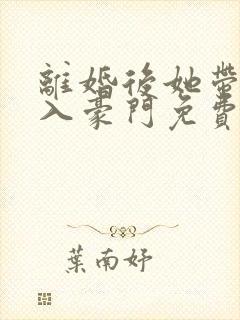 離婚後她帶
入豪門免費
葉南妤